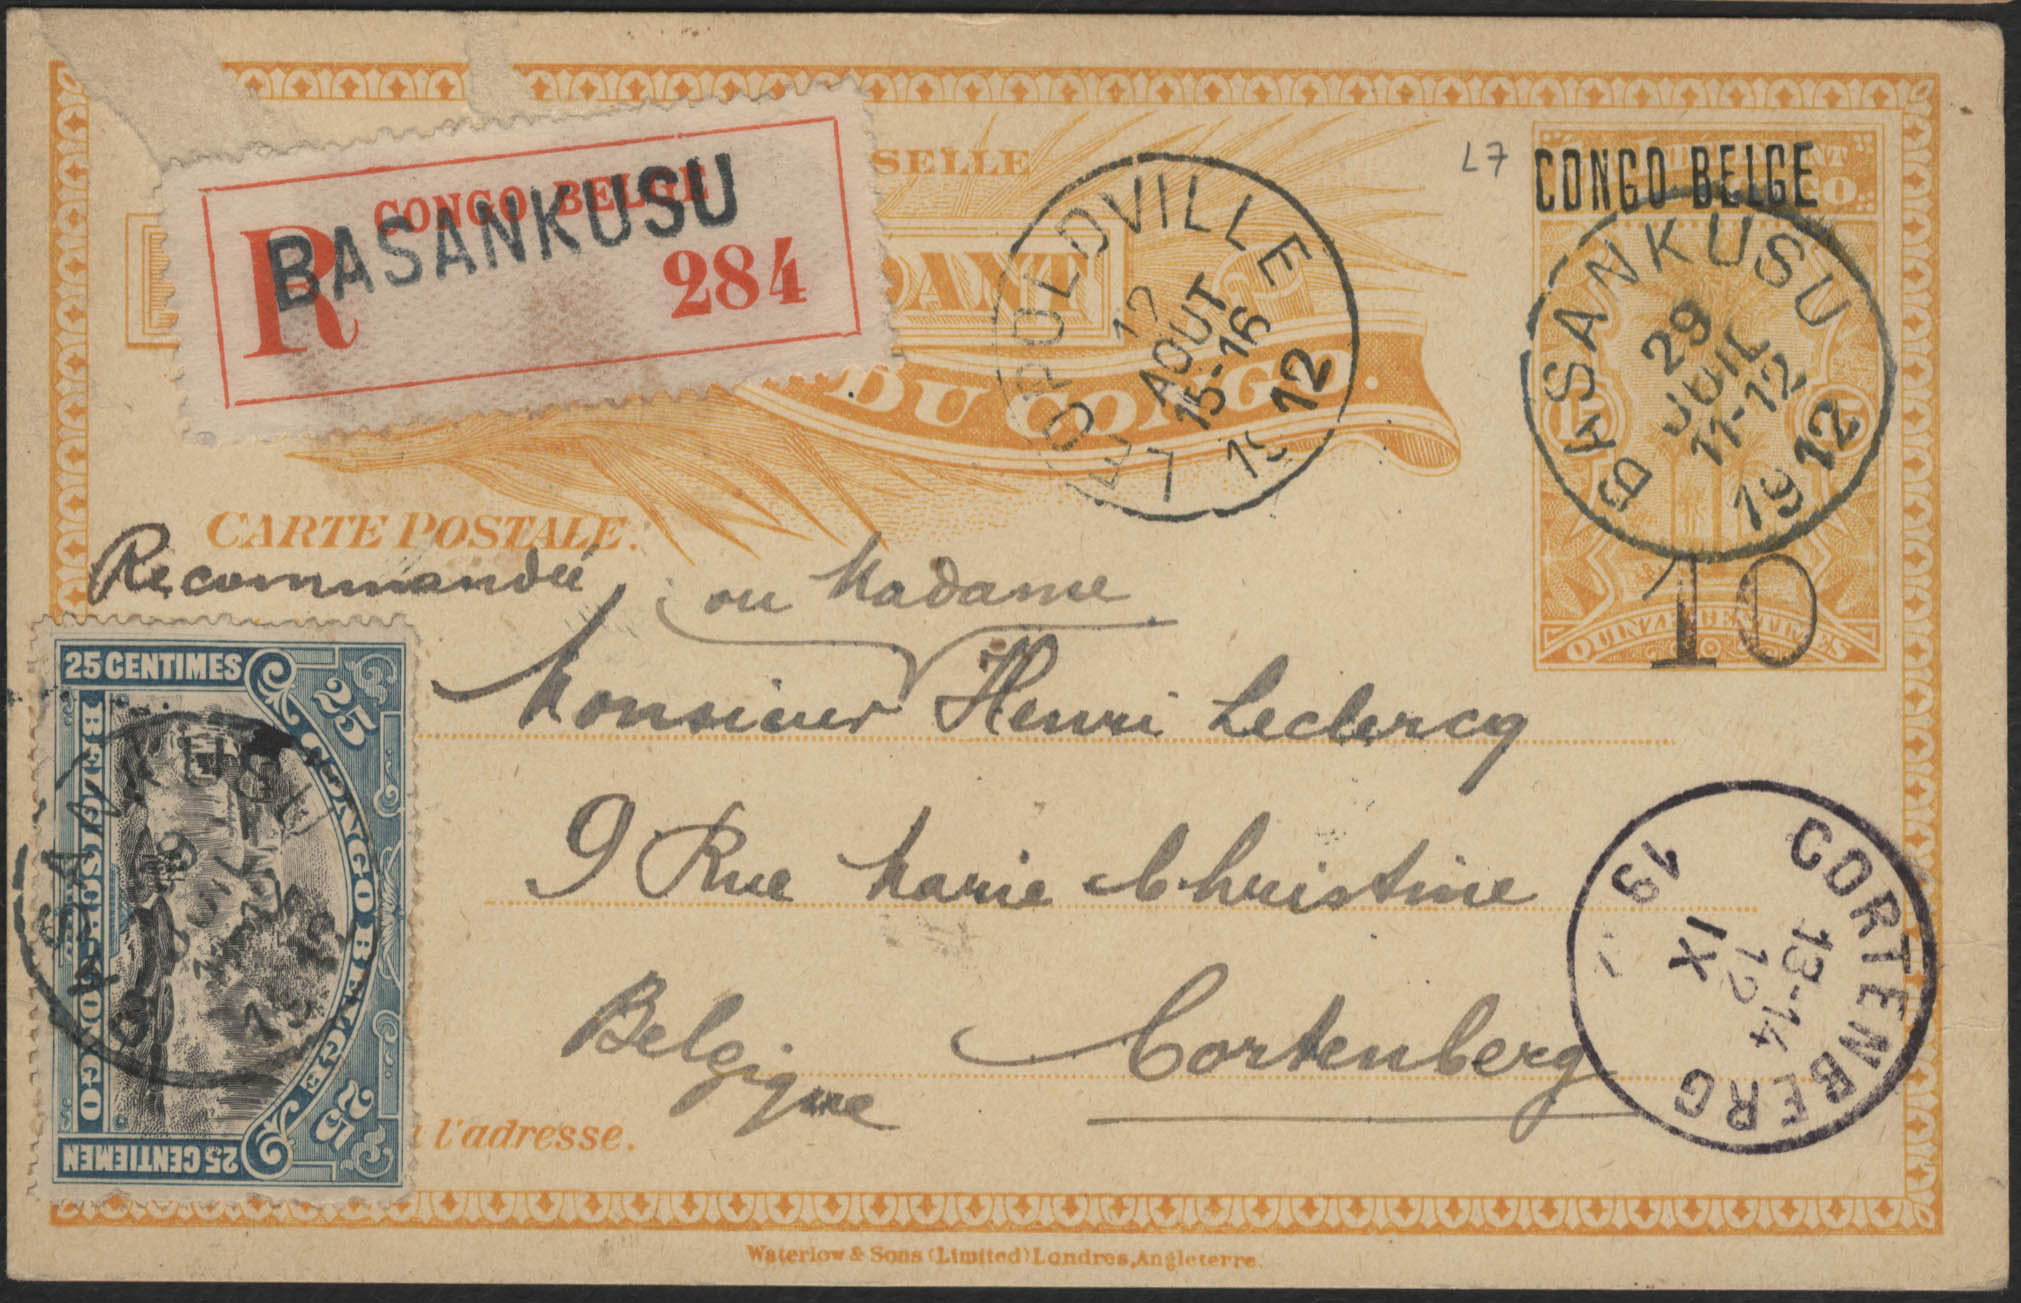 CONGO BELGE
R
BASANKUSU
284
SELLE
DANT
DU CONGO.
CARTE POSTALE.
LEOPOLDVILLE
12
AOUT
15-16
1912
L7
CONGO BELGE
BASANKUSU
29
JUIL
11-12
1912
15
QUINZE CENTIMES
10
Recommandée
ou Madame
Monsieur Henri Leclercq
9 Rue Marie Christine
Belgique Cortenberg
25 CENTIMES
25
CONGO BELGE
BELGISCH-CONGO
25
25 CENTIEMEN
BASANKUSU
CORTENBERG
13-14
12
IX
19
l'adresse.
Waterlow & Sons (Limited) Londres, Angleterre.